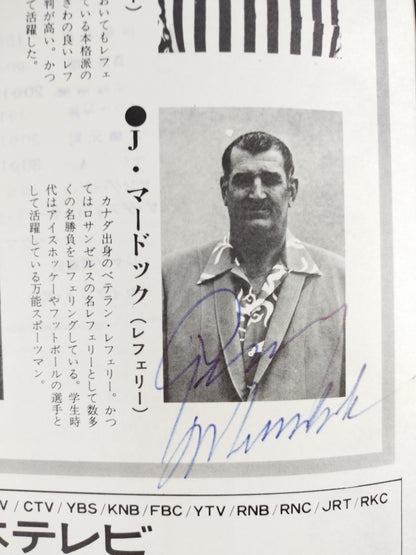 ●J・マードック（レフェリー）
カナダ出身のベテラン・レフェリー。かつ
てはロサンゼルスの名レフェリーとして数多
くの名勝負をレフェリングしている。学生時
代はアイスホッケーやフットボールの選手と
して活躍している万能スポーツマン。
おいてもレフェ
ている本格派の
きわの良いレフ
判が高い。かつ
て活躍した。
V/CTV/YBS/KNB/FBC/YTV/RNB/RNC/JRT/RKC
テレビ